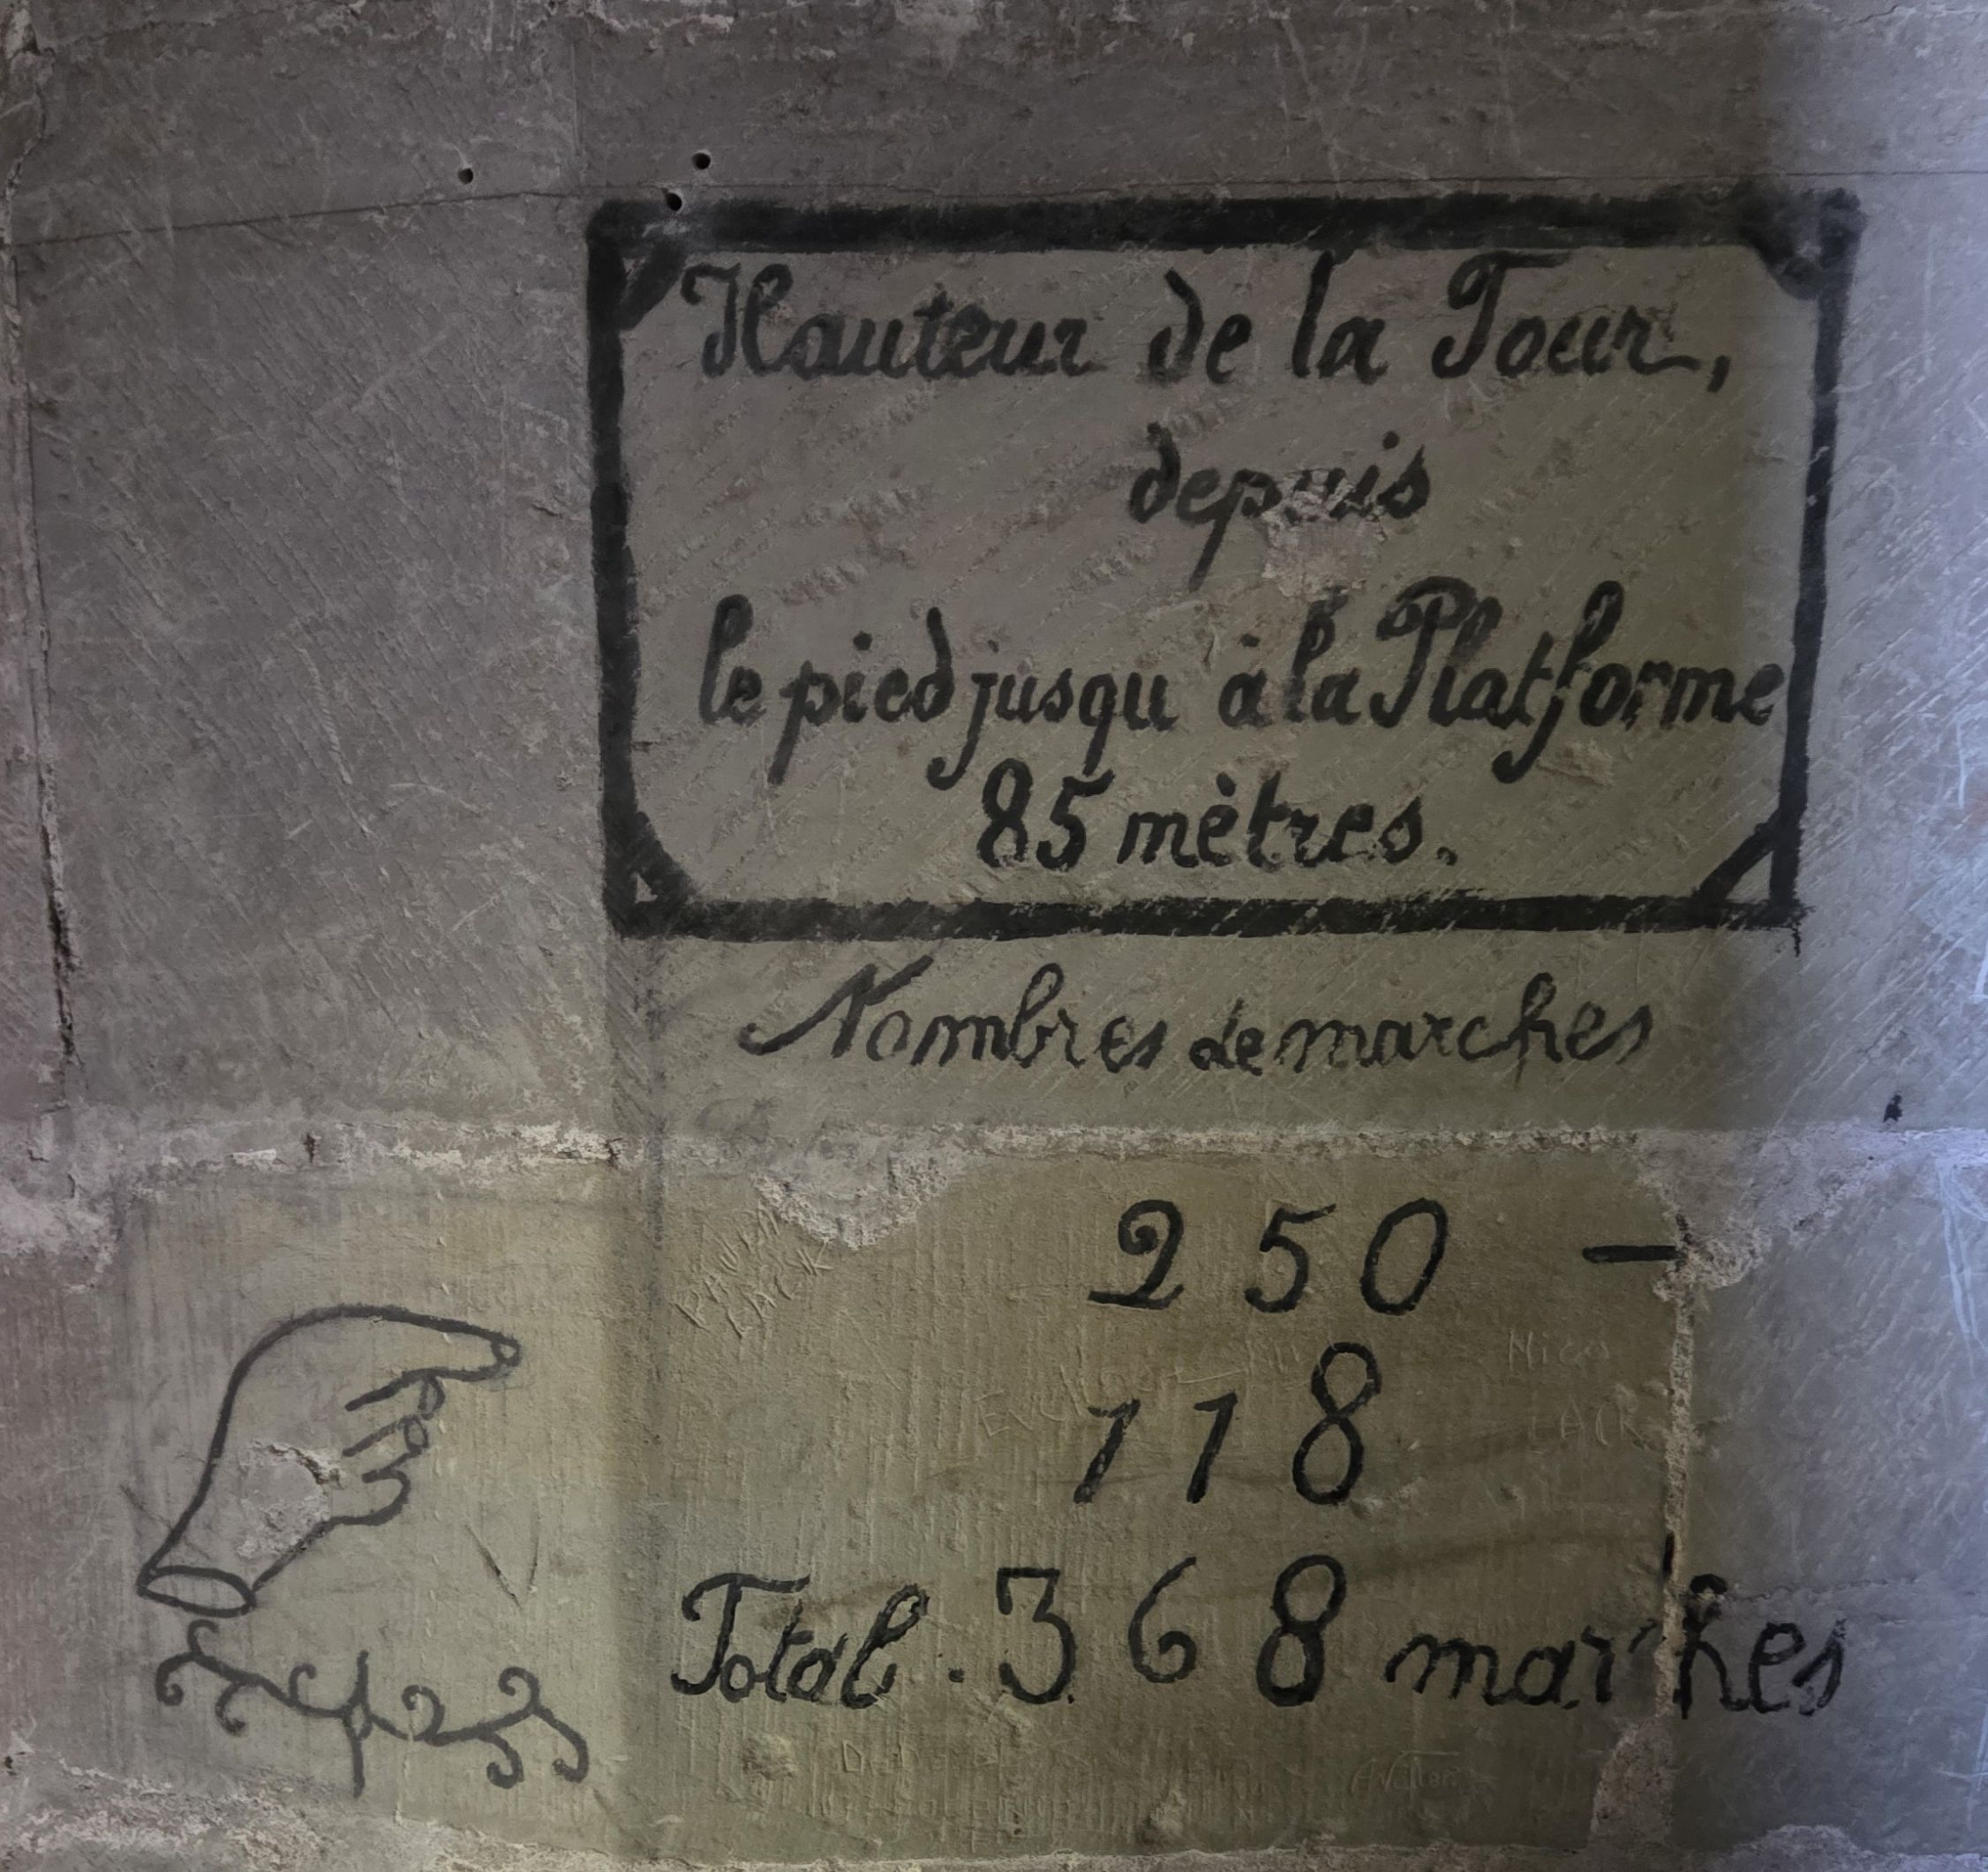 Hauteur de la Tour,
depuis
le pied jusqu à la Platforme
85 mètres.
Nombres de marches
250 —
118
Total. 368 marches
Nico
LACK